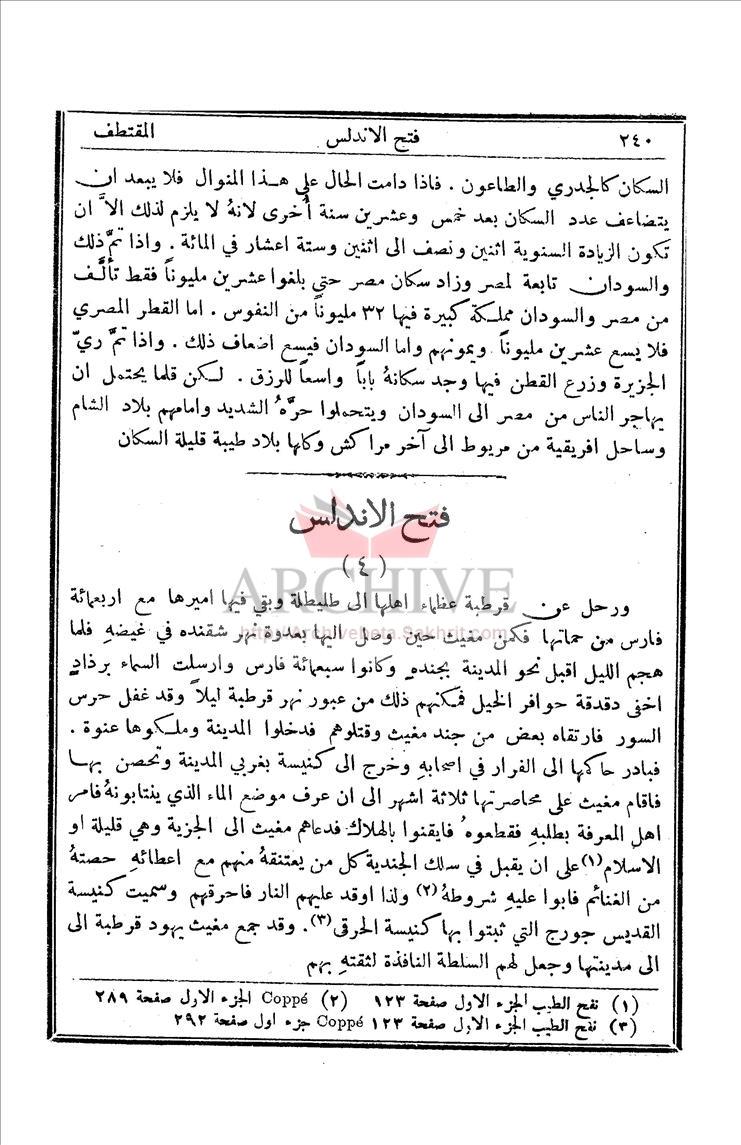 ٢٤٠ فتح الاندلس المقتطف
السكان كالجدري والطاعون . فاذا دامت الحال على هذا المنوال فلا يبعد ان
يتضاعف عدد السكان بعد خمس وعشرين سنة أُخرى لانهُ لا يلزم لذلك الاَّ ان
تكون الزيادة السنوية اثنين ونصف الى اثنين وستة اعشار في المائة . واذا تمَّ ذلك
والسودان تابعة لمصر وزاد سكان مصر حتى بلغوا عشرين مليوناً فقط تأَلَّف
من مصر والسودان مملكة كبيرة فيها ٣٢ مليوناً من النفوس . اما القطر المصري
فلا يسع عشرين مليوناً ويمونهم واما السودان فيسع اضعاف ذلك . واذا تمَّ ريّ
الجزيرة وزرع القطن فيها وجد سكانهُ باباً واسعاً للرزق . لكن قلما يحتمل ان
يهاجر الناس من مصر الى السودان ويتحملوا حرَّهُ الشديد وامامهم بلاد الشام
وساحل افريقية من مريوط الى آخر مراكش وكلها بلاد طيبة قليلة السكان
فتح الاندلس
(٤)
ARCHIVE
http://Archivebeta.Sakhrit.com
ورحل عن قرطبة عظماء اهلها الى طليطلة وبقي فيها اميرها مع اربعمائة
فارس من حماتها فكمن مغيث حين وصل اليها بعدوة نهر شقنده في غيضهِ فلما
هجم الليل اقبل نحو المدينة بجندهِ وكانوا سبعمائة فارس وارسلت السماء برذاذٍ
اخفى دقدقة حوافر الخيل فمكنهم ذلك من عبور نهر قرطبة ليلاً وقد غفل حرس
السور فارتقاه بعض من جند مغيث وقتلوهم فدخلوا المدينة وملكوها عنوة .
فبادر حاكمها الى الفرار في اصحابهِ وخرج الى كنيسة بغربي المدينة وتحصن بها
فاقام مغيث على محاصرتها ثلاثة اشهر الى ان عرف موضع الماء الذي ينتابونهُ فامر
اهل المعرفة بطلبهِ فقطعوهُ فايقنوا بالهلاك فدعاهم مغيث الى الجزية وهي قليلة او
الاسلام (١) على ان يقبل في سلك الجندية كل من يعتنقهُ منهم مع اعطائهِ حصتهُ
من الغنائم فابوا عليهِ شروطهُ (٢) ولذا اوقد عليهم النار فاحرقهم وسميت كنيسة
القديس جورج التي ثبتوا بها كنيسة الحرقى (٣). وقد جمع مغيث يهود قرطبة الى
الى مدينتها وجعل لهم السلطة النافذة لثقتهِ بهم
(١) نفح الطيب الجزء الاول صفحة ١٢٣ (٢) Coppé الجزء الاول صفحة ٢٨٩
(٣) نفح الطيب الجزء الاول صفحة ١٢٣ Coppé جزء اول صفحة ٢٩٢